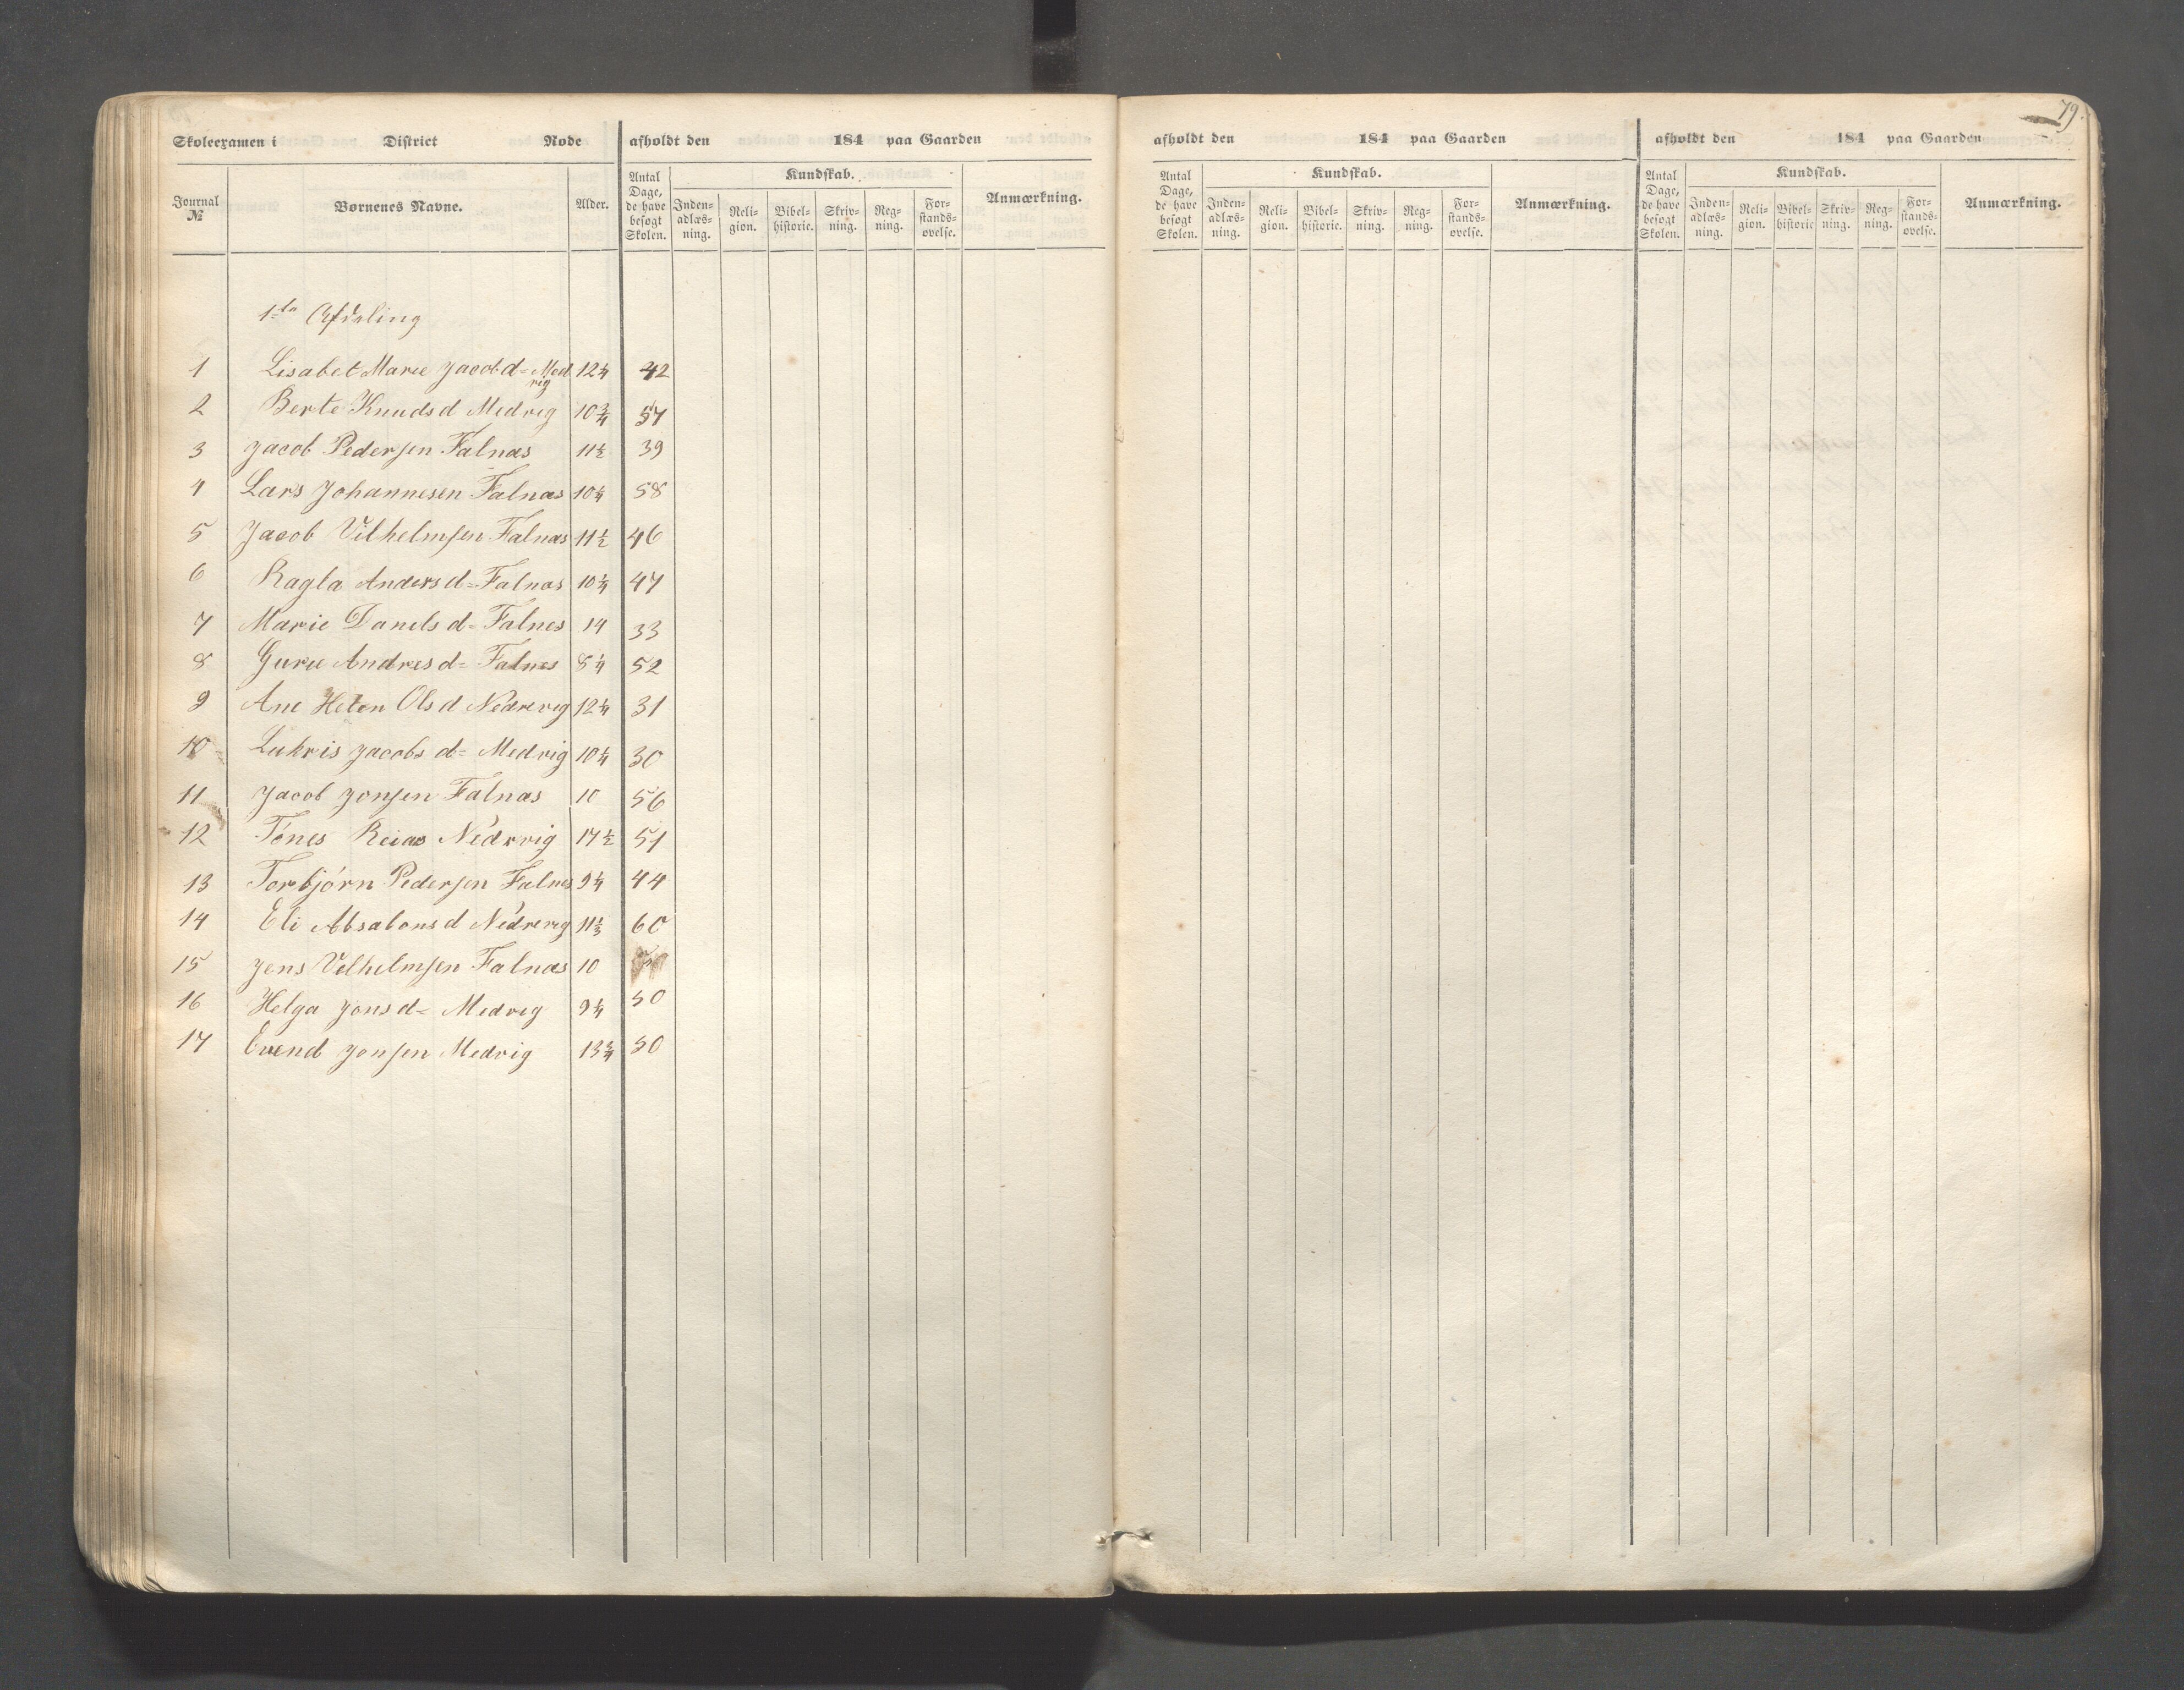 79.
Skoleexamen i District Rode afholdt den 184 paa Gaarden afholdt den 184 paa Gaarden afholdt den 184 paa Gaarden
Journal № Børnenes Navne. Alder. Antal Dage, de have besøgt Skolen. Kundskab. Inden-adlæs-ning. Reli-gion. Bibel-historie. Skriv-ning. Reg-ning. For-stands-øvelse. Anmærkning.
Antal Dage, de have besøgt Skolen. Kundskab. Inden-adlæs-ning. Reli-gion. Bibel-historie. Skriv-ning. Reg-ning. For-stands-øvelse. Anmærkning.
Antal Dage, de have besøgt Skolen. Kundskab. Inden-adlæs-ning. Reli-gion. Bibel-historie Skriv-ning. Reg-ning. For-stands-øvelse. Anmærkning.
1ste Afdeling
1 Lisabet Marie Jacobd= Medvig 12¼ 42
2 Berte Knudsd Medvig 10¾ 57
3 Jacob Pedersen Falnæs 11½ 39
4 Lars Johannesen Falnæs 10¼ 58
5 Jacob Vilhelmsen Falnæs 11½ 46
6 Ragla Andersd= Falnæs 10¼ 47
7 Marie Danelsd= Falnes 14 33
8 Gurie Andresd= Falnes 8¼ 52
9 Ane Helen Olsd Nedrevig 12¼ 31
10 Lukris Jacobsd= Medvig 10¼ 30
11 Jacob Jonsen Falnæs 10 56
12 Tónes Reias Nedrvig 14½ 51
13 Torbjórn Pedersen Falnes 9¼ 44
14 Eli Absalonsd Nedrevig 11⅓ 60
15 Jens Velhelmsen Falnæs 10
16 Helga Jonsd= Medvig 9¼ 50
17 Evend Jonsen Medvig 13¾ 50